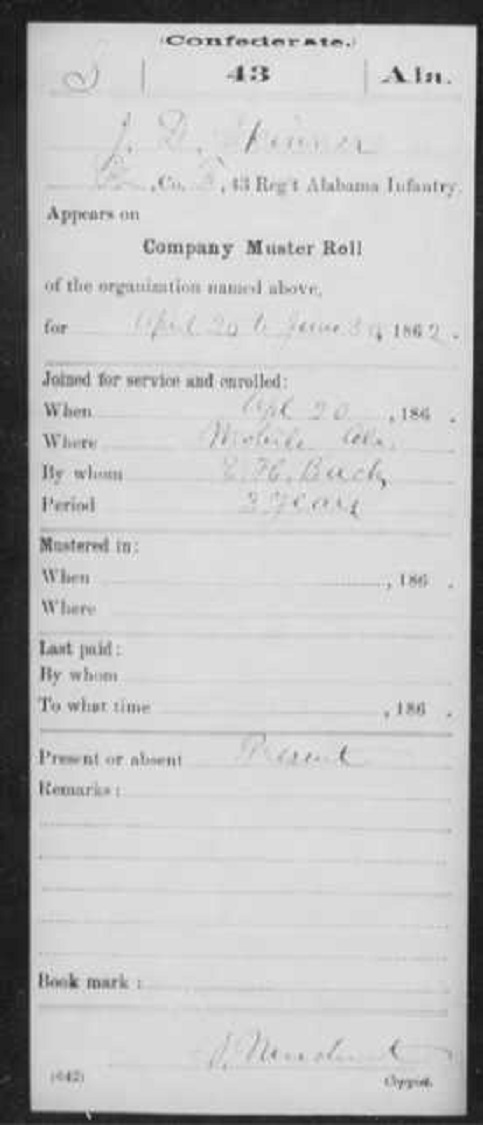 (Confederate.)
S | 43 | Ala.
J. D. Skinner
, Co. , 43 Reg't Alabama Infantry.
Appears on
Company Muster Roll
of the organization named above,
for April 20 to June 30, 1862.
Joined for service and enrolled:
When Apl 20, 186 .
Where Mobile Ala.
By whom Buck
Period 3 years
Mustered in:
When , 186 .
Where
Last paid:
By whom
To what time , 186 .
Present or absent Present
Remarks:
Book mark:
(642) Copyist.